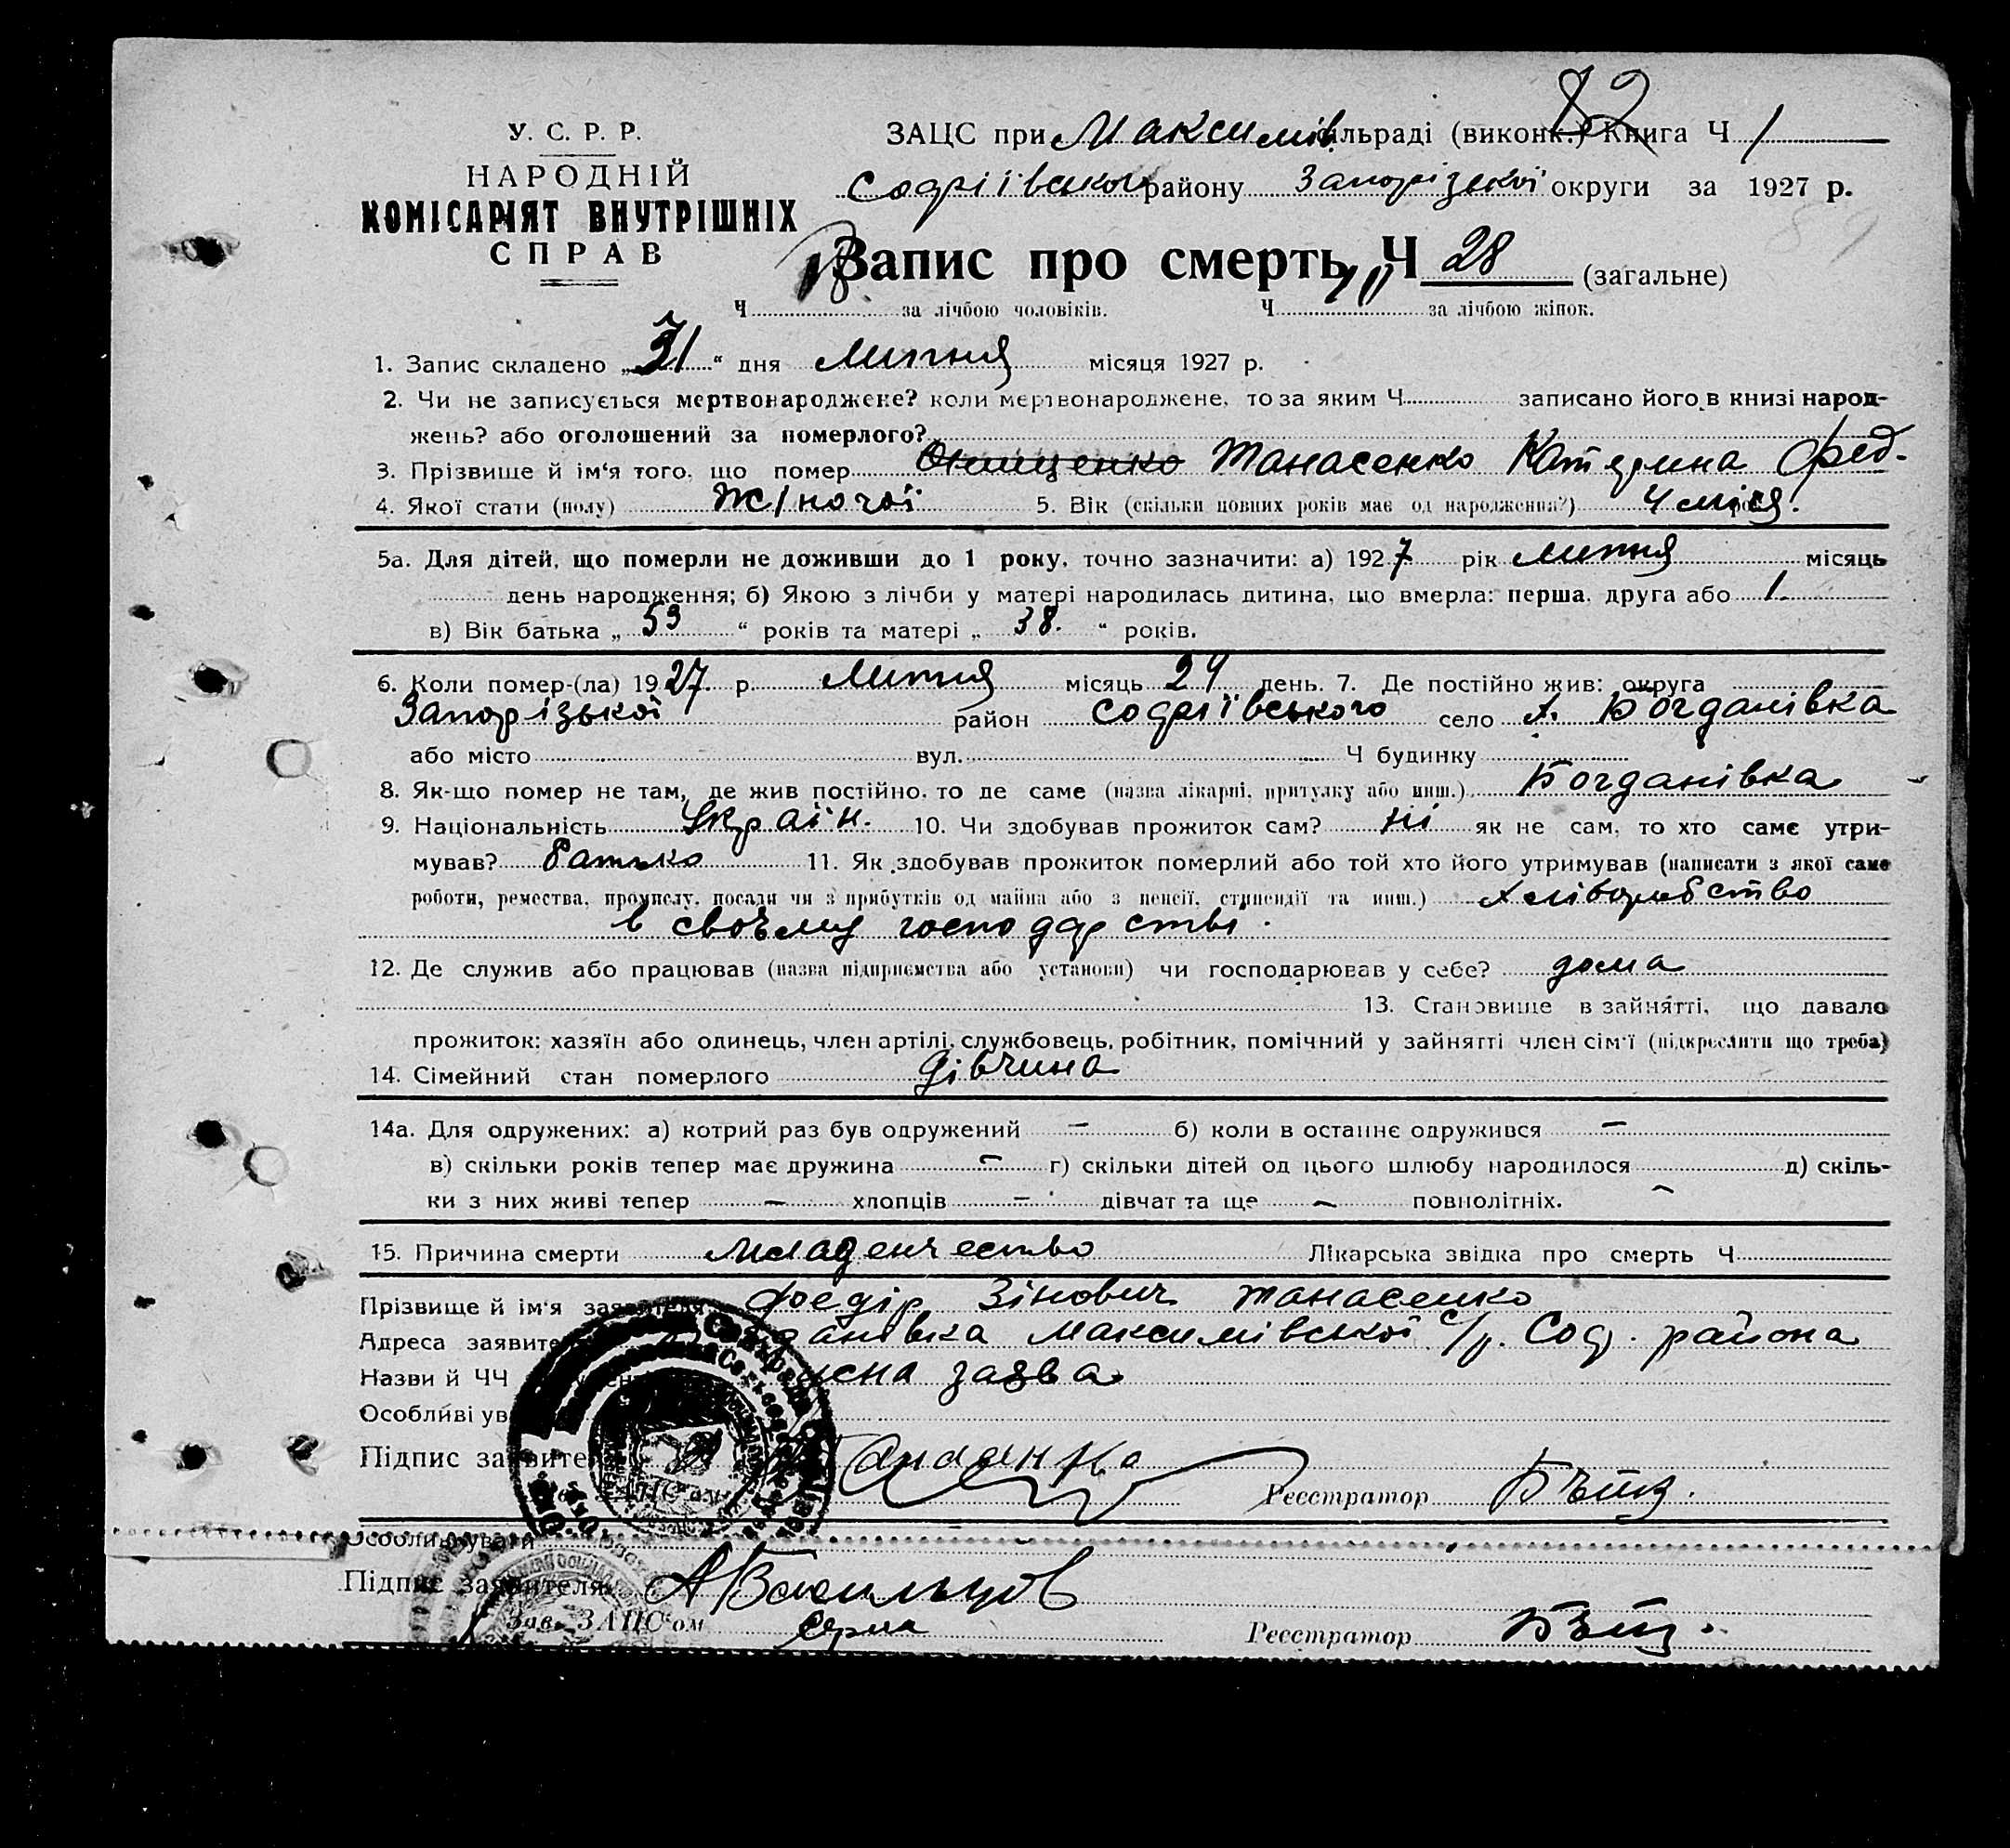 82
У. С. Р. Р.
НАРОДНІЙ
КОМІСАРІЯТ ВНУТРІШНІХ
СПРАВ
ЗАЦС при Максимів сільраді (виконк.) Книга Ч 1
Софіївського району Запорізької округи за 1927 р.
Запис про смерть Ч 28 (загальне)
Ч за лічбою чоловіків. Ч за лічбою жінок.
1. Запис складено „31“ дня Липня місяця 1927 р.
2. Чи не записується мертвонароджене? коли мертвонароджене, то за яким Ч записано його в книзі народ-
жень? або оголошений за померлого?
3. Прізвище й ім‘я того, що помер Онищенко Танасенко Катерина Фед.
4. Якої стати (полу) Жіночої 5. Вік (скільки повних років має од народження?) 4 міся.
5а. Для дітей, що померли не доживши до 1 року, точно зазначити: а) 1927 рік Липня місяць
день народження; б) Якою з лічби у матері народилась дитина, що вмерла: перша, друга або 1.
в) Вік батька „53“ років та матері „38.“ років.
6. Коли помер-(ла) 1927. р. Липня місяць 24 день. 7. Де постійно жив: округа
Запорізької район Софіївського село х. Богданівка
або місто вул. Ч будинку
8. Як-що помер не там, де жив постійно, то де саме (назва лікарні, притулку або инш.) Богданівка
9. Національність Україн. 10. Чи здобував прожиток сам? Ні як не сам, то хто саме утри-
мував? батько 11. Як здобував прожиток померлий або той хто його утримував (написати з якої саме
роботи, ремества, промислу, посади чи з прибутків од майна або з пенсії, стипендії та инш.) хліборобство
в своєму господарстві.
12. Де служив або працював (назва підприємства або установи) чи господарював у себе? дома
13. Становище в зайнятті, що давало
прожиток: хазяїн або одинець, член артілі, службовець, робітник, помічний у зайнятті член сім‘ї (підкреслити що треба)
14. Сімейний стан померлого дівчина
14а. Для одружених: а) котрий раз був одружений – б) коли в останнє одружився –
в) скільки років тепер має дружина – г) скільки дітей од цього шлюбу народилося д) скіль-
ки з них живі тепер – хлопців – дівчат та ще – повнолітніх. –
15. Причина смерти младенчество Лікарська звідка про смерть Ч
Прізвище й ім‘я заявителя Федір Зінович Танасенко
Адреса заявителя Богданівка Максимівської с/р. Соф. района
Назви й ЧЧ заява
Особливі ув
Підпис заявителя Танасенко
ЗАПС‘ом Реєстратор
Особливі уваги
Підпис заявителя АВасильцов
Зав. ЗАПС‘ом Реєстратор